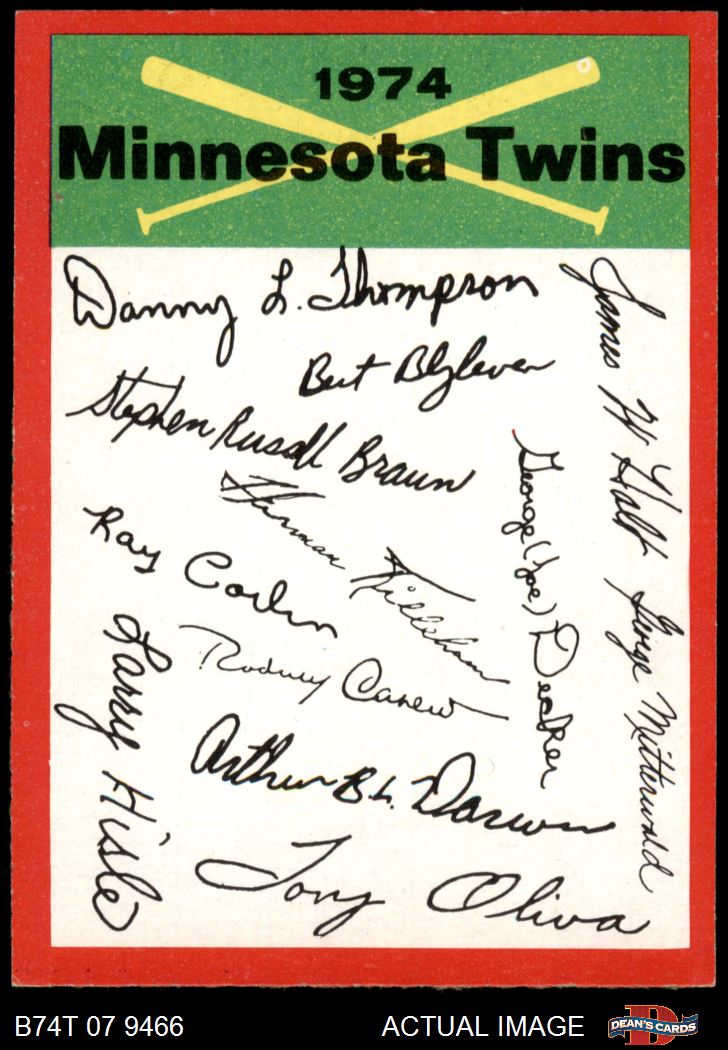 1974
Minnesota Twins
Danny L. Thompson
James W Holt
Bert Blyleven
Stephen Russell Braun
George (Joe) Decker
Harman Killebrew
Ray Corbin
George Mitterwald
Larry Hisle
Rodney Carew
Arthur B L. Darwin
Tony Oliva
B74T 07 9466
ACTUAL IMAGE
D
DEAN'S CARDS